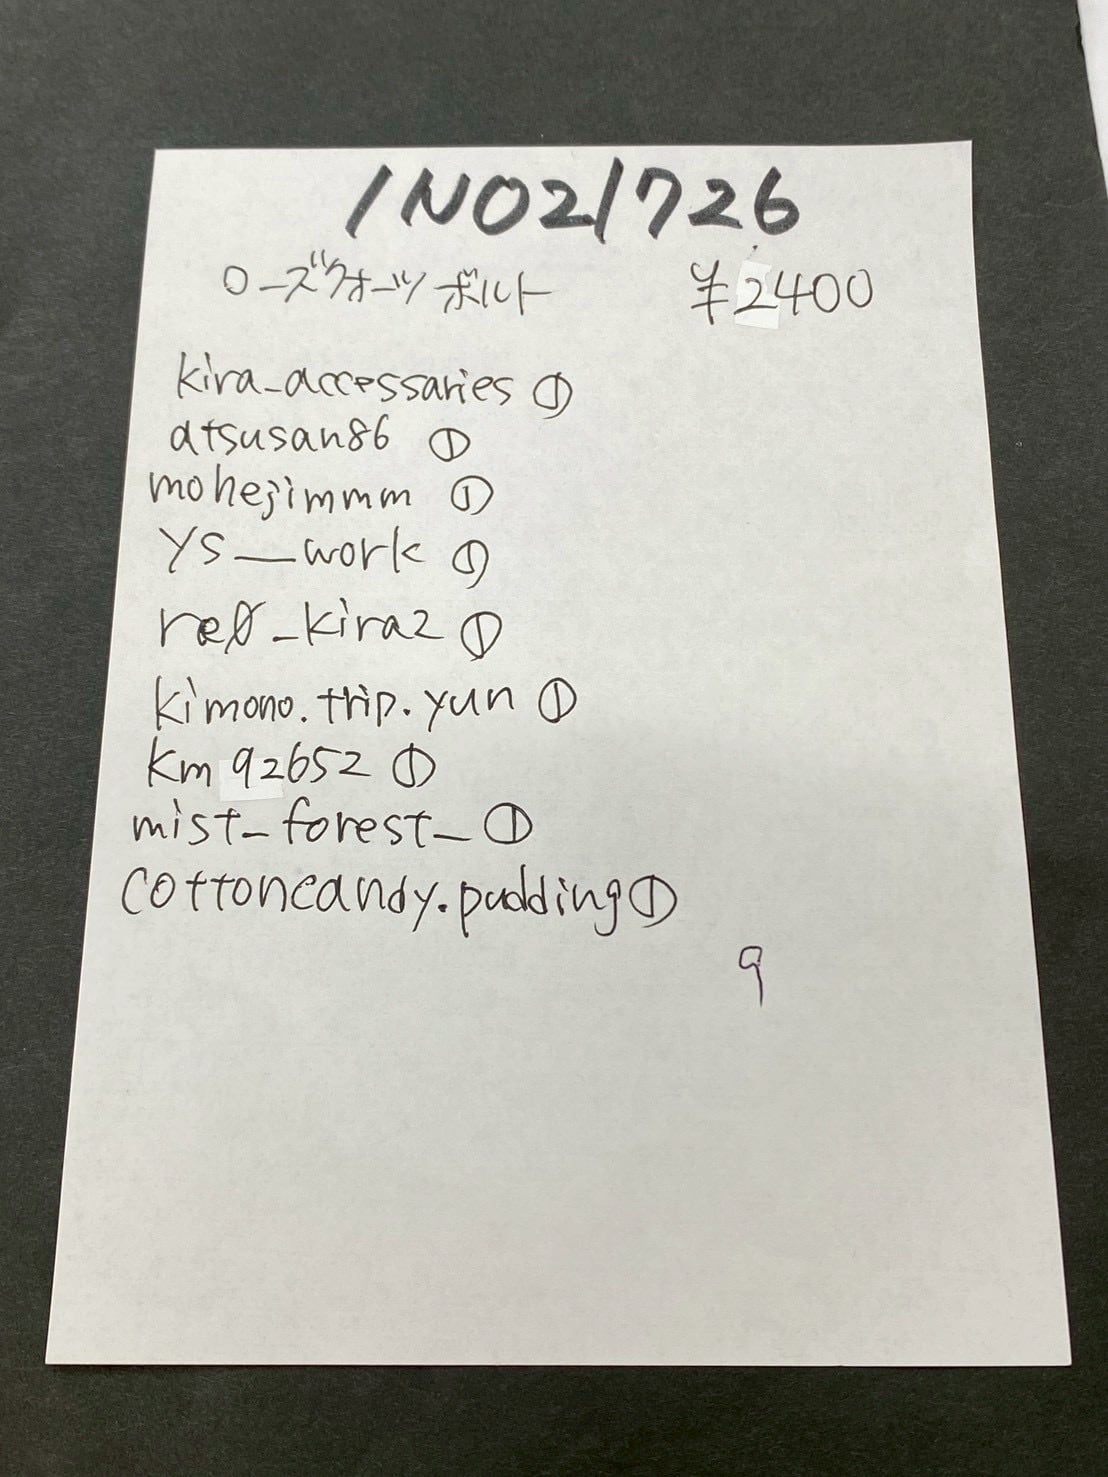 INO21726
ローズクォーツ ボルト ¥2400
kira_accessaries ①
atsusan86 ①
mohejimmm ①
ys__work ①
re0_kira2 ①
kimono.trip.yun ①
km92652 ①
mist_forest_ ①
cottoncandy.pudding ①
9